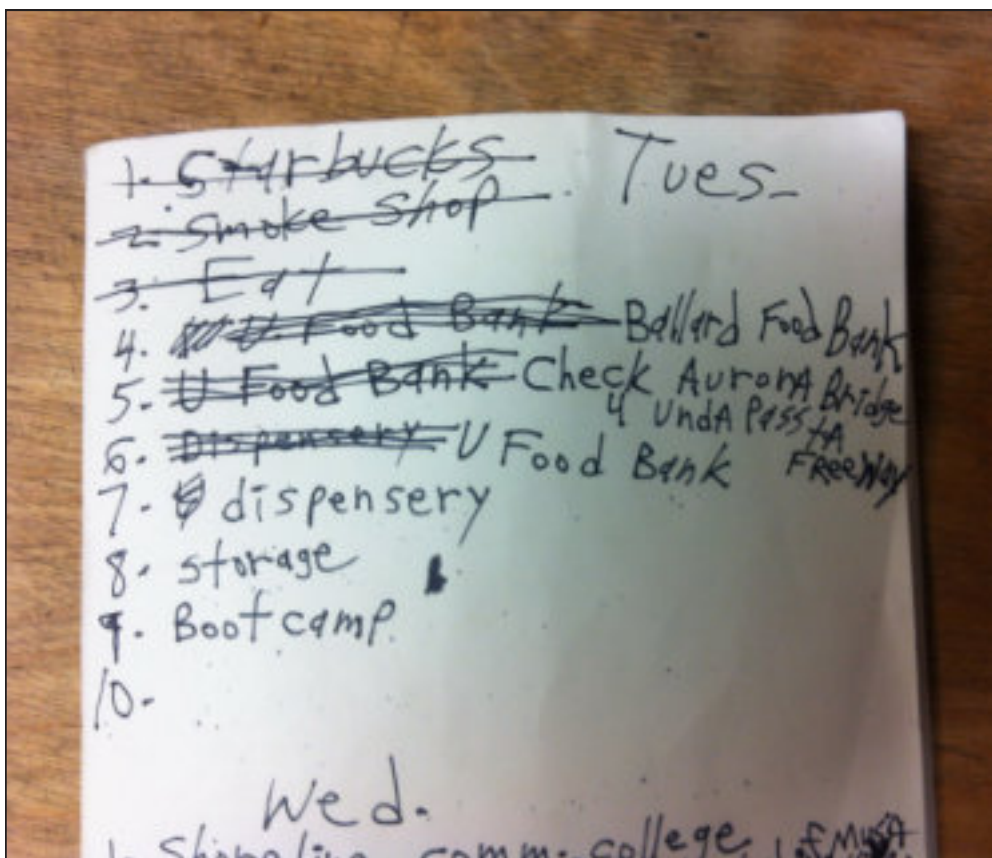 1. Starbucks Tues.
2. Smoke Shop
3. Eat
4. U Food Bank Ballard Food Bank
5. U Food Bank Check Aurora Bridge
4 UndA Pass tA
6. Dispensery U Food Bank FreeWay
7. dispensery
8. storage
9. Boot camp
10.
Wed.
1. Shoreline comm. college